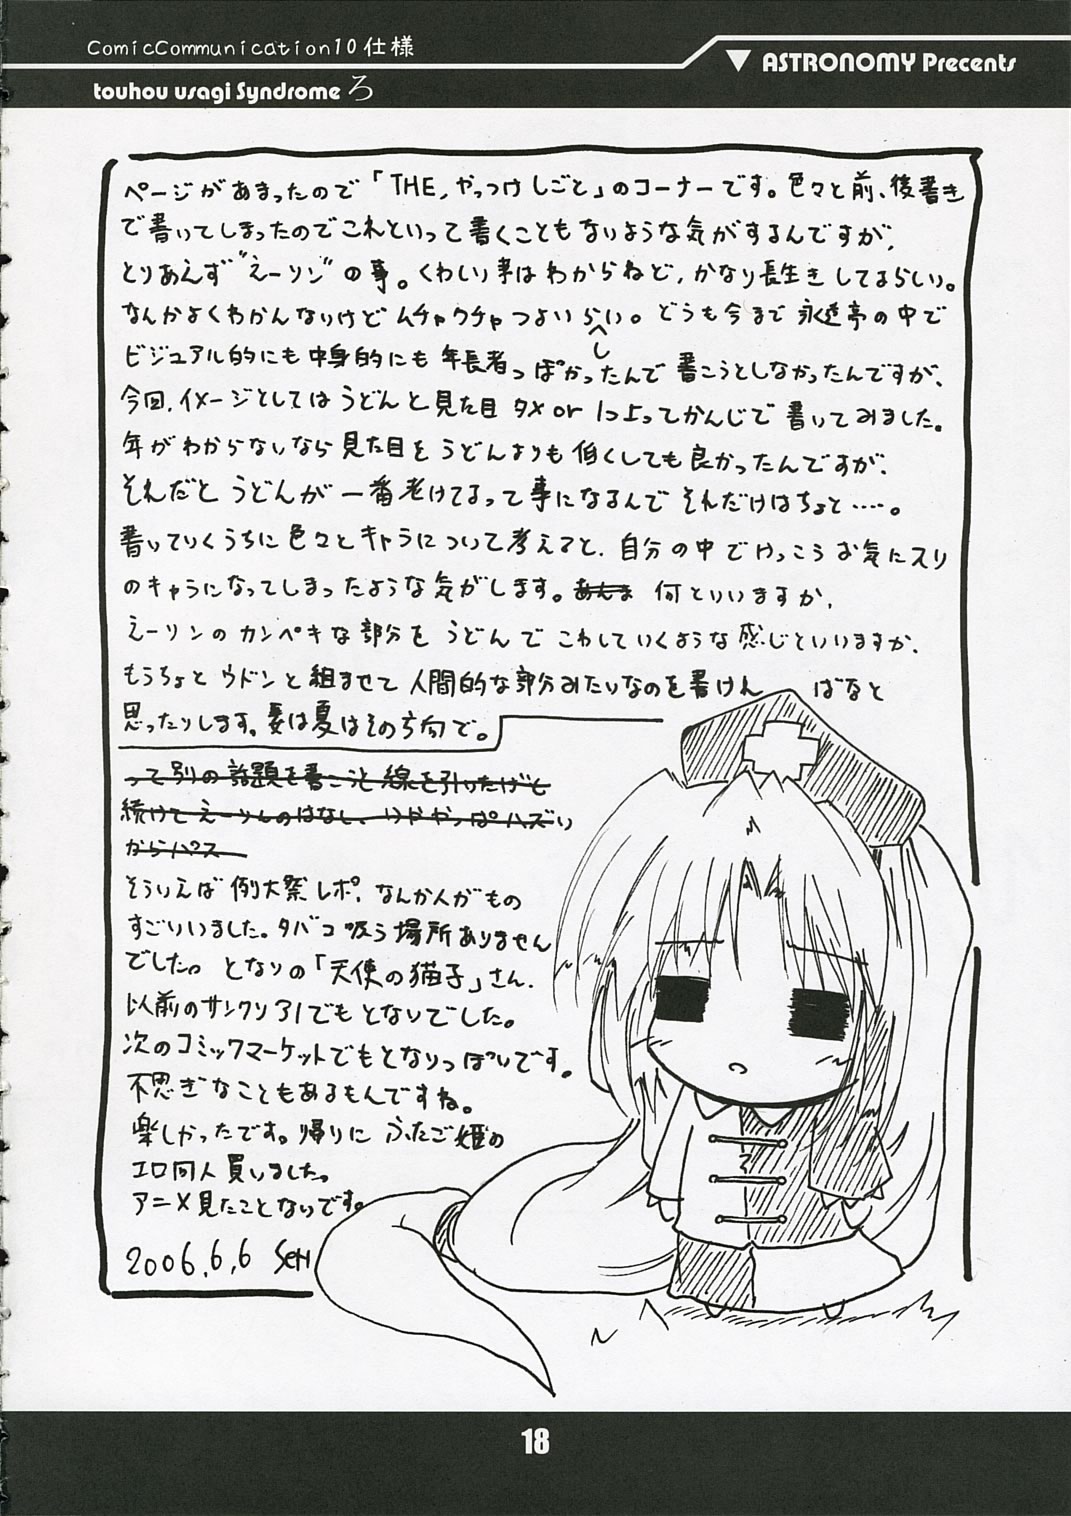 ComicCommunication10仕様
▼ ASTRONOMY Precents
touhou usagi Syndrome ろ
ページがあまったので「THE,やっつけしごと」のコーナーです。色々と前、後書き
で書いてしまったのでこれといって書くこともないような気がするんですが、
とりあえず"えーりン"の事。くわしい事はわからねど、かなり長生きしてるらしい。
なんかよくわかんないけどムチャクチャつよいらしい。どうも今まで永遠亭の中で
ビジュアル的にも中身的にも年長者っぽかったんで書こうとしなかったんですが、
今回、イメージとしてはうどんと見た目タメor1っ上ってかんじで書いてみました。
年がわからないなら見た目をうどんよりも低くしても良かったんですが、
それだとうどんが一番老けてるって事になるんでそれだけはちょと……。
書いていくうちに色々とキャラについて考えてると、自分の中でけっこうお気にスリ
のキャラになってしまったような気がします。あんま 何といいますか、
えーリンのカンペキな部分をうどんでこわしていくような感じといいますか、
もうちょとウドンと組ませて人間的な部分みたいなのを書けん ばなと
思ったりします。 は夏はその方向で。
って別の話題を書こうと線を引いたけど
続けてえーりんのはなし、 やっぱハズい
からパス
そういえば例大祭レポ、なんか人がもの
すごいいました。タバコ吸う場所ありません
でした。となりの「天使の猫子」さん、
以前のサンクリ31でもとなりでした。
次のコミックマーケットでもとなりっぽいです。
不思ぎなこともあるもんですね。
楽しかったです。帰りにふたご姫の
エロ同人買いました。
アニメ見たことないです。
2006.6.6 SEN
18